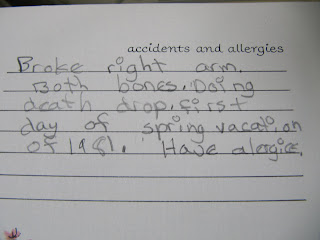 accidents and allergies
Broke right arm.
Both bones. Doing
death drop, first
day of spring vacation
of 1981. Have alergice.